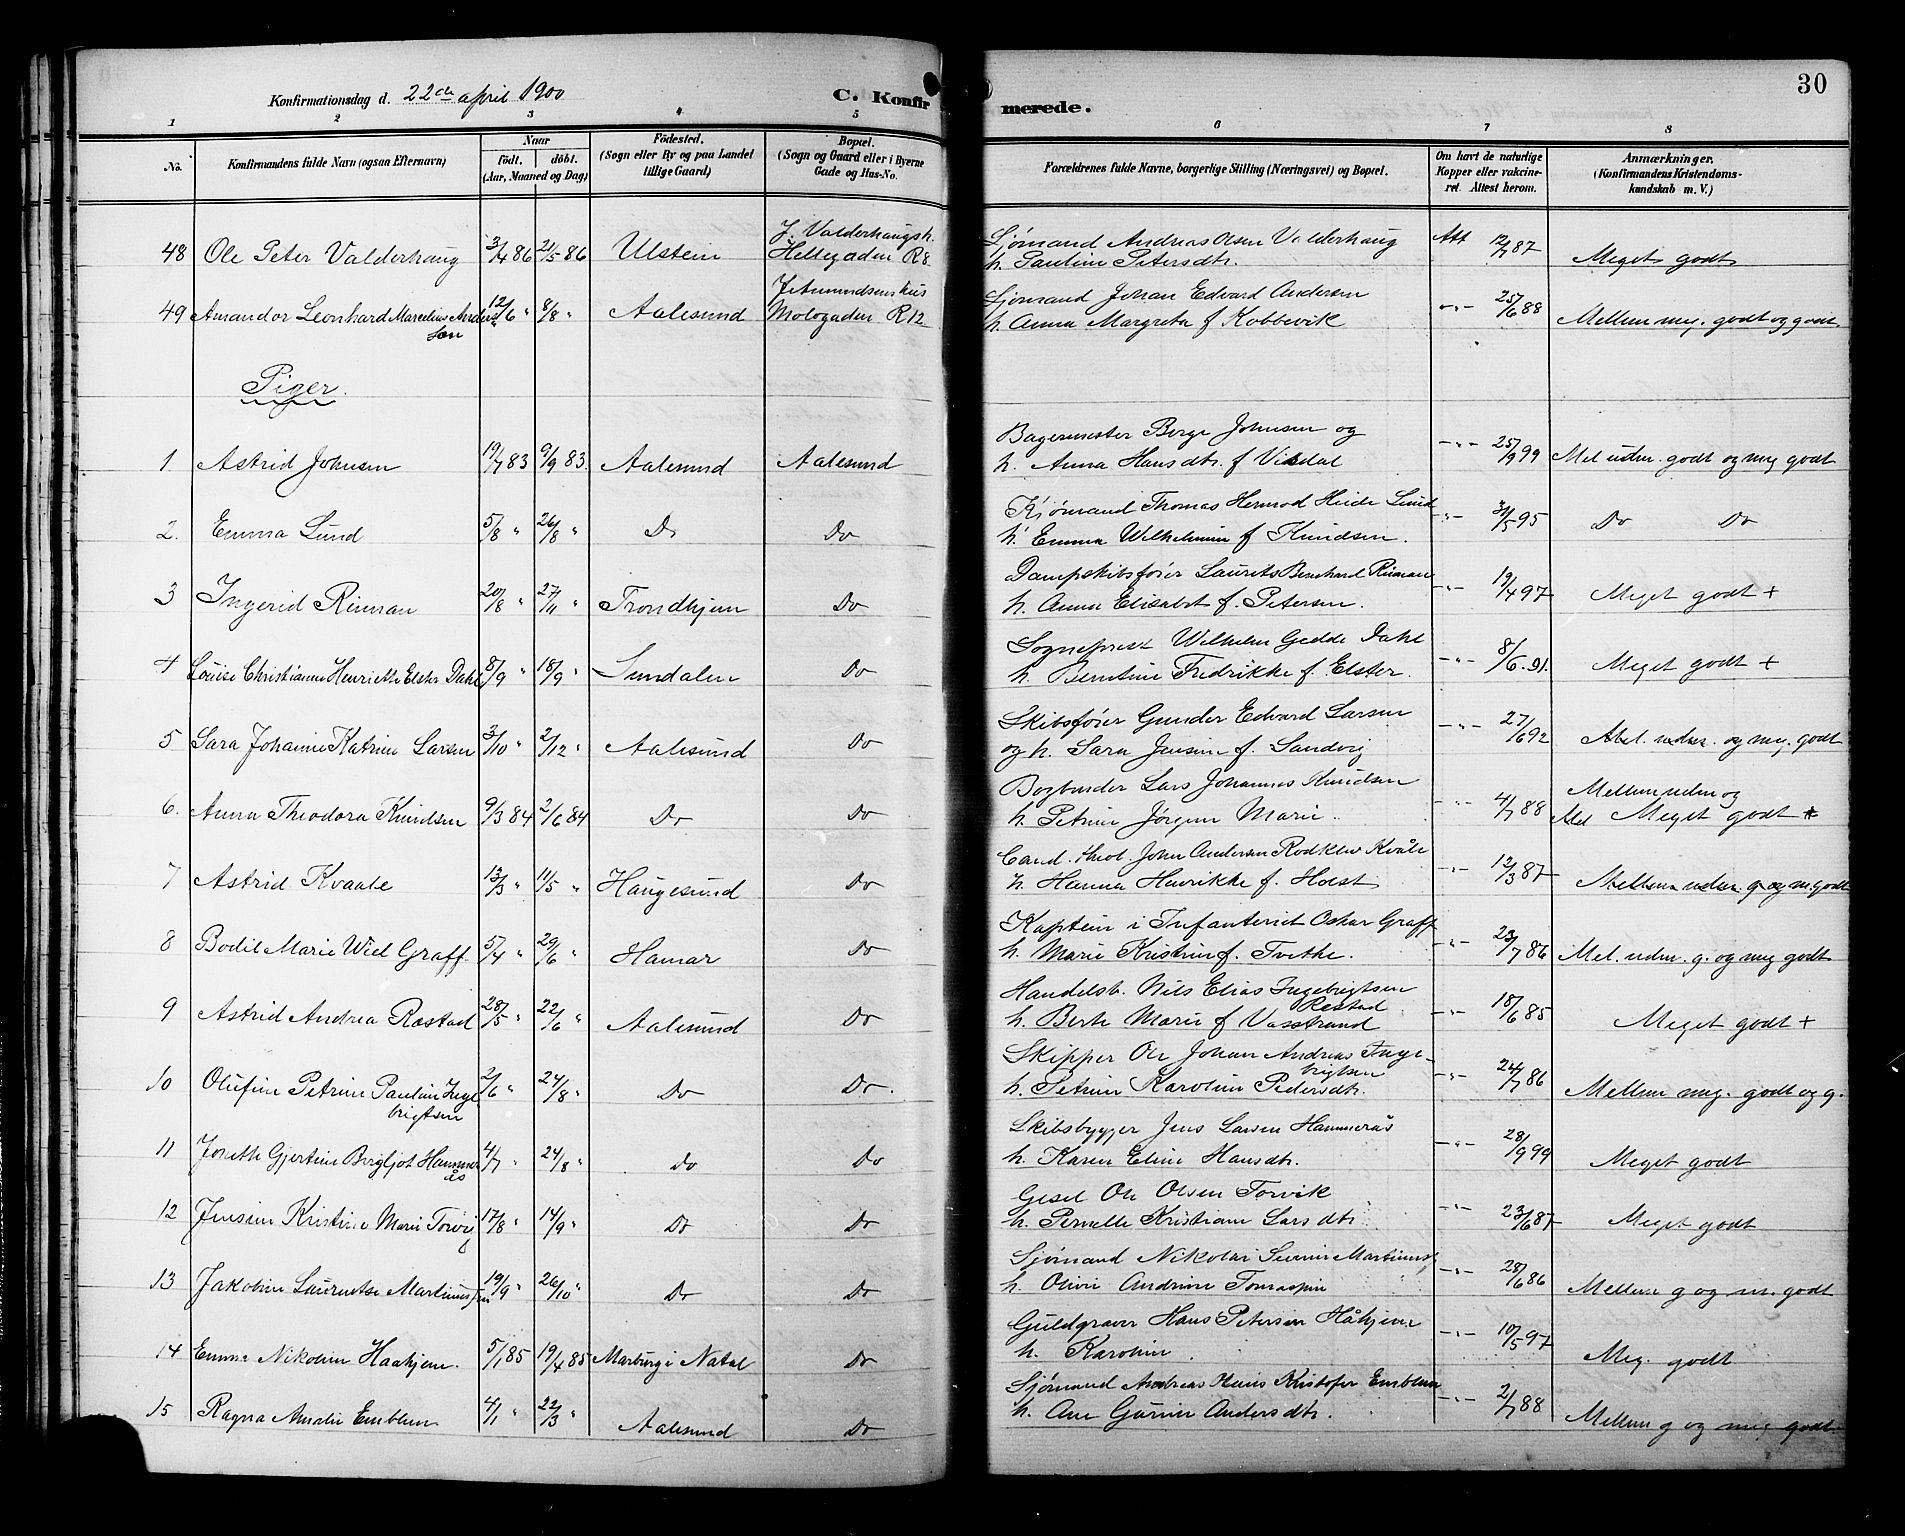 30
Konfirmationsdag d. 22de april 1900
C. Konfirmerede.
1 2 3 4 5 6 7 8
No. Konfirmandens fulde Navn (ogsaa Efternavn) Naar födt. döbt. (Aar, Maaned og Dag) Födested. (Sogn eller By og paa Landet tillige Gaard) Bopæl. (Sogn og Gaard eller i Byerne Gade og Hus-No. Forældrenes fulde Navne, borgerlige Stilling (Næringsvei) og Bopæl. Om havt de naturlige Kopper eller vakcineret. Attest herom. Anmærkninger. (Konfirmandens Kristendomskundskab m. V.)
48 Ole Peter Valderhaug 3/4 86 21/5 86 Ulstein J. Valderhaugs h. Hellegaden R 8. Sjømand Andreas Olsen Valderhaug h. Pauline Petersdtr. Att 12/7 87 Meget godt
49 Amandor Leonhard Marcelius Andersen 12/6 " 8/8 " Aalesund Mologaden R 12. Sjømand Johan Edvard Andersen h. Anna Margreta f Kobbevik -"- 25/6 88 Mellem meg. godt og godt.
Piger.
1. Astrid Johnsen 19/7 83 9/9 83. Aalesund Aalesund Bagermester Berge Johnsen og h. Anna Hansdtr. f Visdal -"- 25/9 99 Mel udm. godt og meg godt
2. Emma Lund 5/8 " 26/8 " Do Do Kjømand Thomas Hermod Heide Lund h. Emma Wilhelmine f Knudsen. -"- 31/5 95 Do Do
3 Ingerid Riiman 20/8 " 27/11 " Trondhjem Do Dampskibsfører Laurits Bernhard Riiman h. Anna Elisabet f. Petersen. -"- 19/4 97 Meget godt +
4 Louise Christianne Henriette Elster Dahl 8/9 " 18/9 " Sundalen Do Sogneprest Wilhelm Gedde Dahl h. Berntine Fredrikke f. Elster. -"- 8/6. 91. Meget godt +
5 Sara Johanne Katrine Larsen 3/10 " 2/12 " Aalesund Do Skibsfører Gunder Edvard Larsen og h. Sara Jensine f. Sandvig -"- 27/6 92 Mel. udm. og meg. godt
6. Anna Theodora Knudsen 9/3 84 2/6 84 Do Do Bogbinder Lars Johannes Knudsen h. Petrine Jørgine Marie. -"- 4/7 88 Mellem udm og Mel Meget godt +
7 Astrid Kvaale 13/3 " 11/5 " Haugesund Do Cand. theol. John Andersen Rodklev Kvåle h. Hanna Henrikke f. Holst -"- 12/3 87 Mellem udm. g. og m. godt
8 Bodil Marie Wiel Graff 5/4 " 29/6 " Hamar Do Kaptein i Infanteriet Oskar Graff h. Marie Kristine f. Tvethe. -"- 23/7 86 Mel. udm. g. og meg godt
9 Astrid Andrea Røstad 28/5 " 22/6 " Aalesund Do Handelsb. Nils Elias Ingebrigtsen Røstad h. Berte Marie f Vasstrand -"- 18/6 85 Meget godt +
10 Olufine Petrine Pauline Ingebrigtsen 2/6 " 24/8 " Do Do. Skipper Ole Johan Andreas Ingebrigtsen h. Petrine Karoline Pedersdtr. -"- 24/7 86 Mellem meg. godt og g.
11 Josette Gjertine Bergljot Hammerås 4/7 " 24/8 " Do Do Skibsbygger Jens Larsen Hammerås h. Karen Eline Hansdtr. -"- 28/9 99 Meget godt
12 Jensine Kristine Marie Torvig 17/8 " 14/9 " Do Do Gesel Ole Olsen Torvik h. Pernelle Kristiane Larsdtr. -"- 23/6 87 Meget godt
13 Jakobine Laurentse Martinussen 19/9 " 26/10 " Do Do Sjømand Nikolai Severin Martinuss. h. Olivie Andrine Tomaspine -"- 28/6 86 Mellem g og m. godt
14 Emma Nikoline Haahjem. 5/1 85 19/4 85 Marburg i Natal Do Guldgraver Hans Petersen Håhjem h. Karoline. -"- 10/5 97 Meg. godt
15 Ragna Amalie Emblem 4/1 " 22/3 " Aalesund Do Sjømand Andreas Olaus Kristofer Emblem h. Ane Gurine Andersdtr. -"- 2/7 88 Mellem g og meg godt.